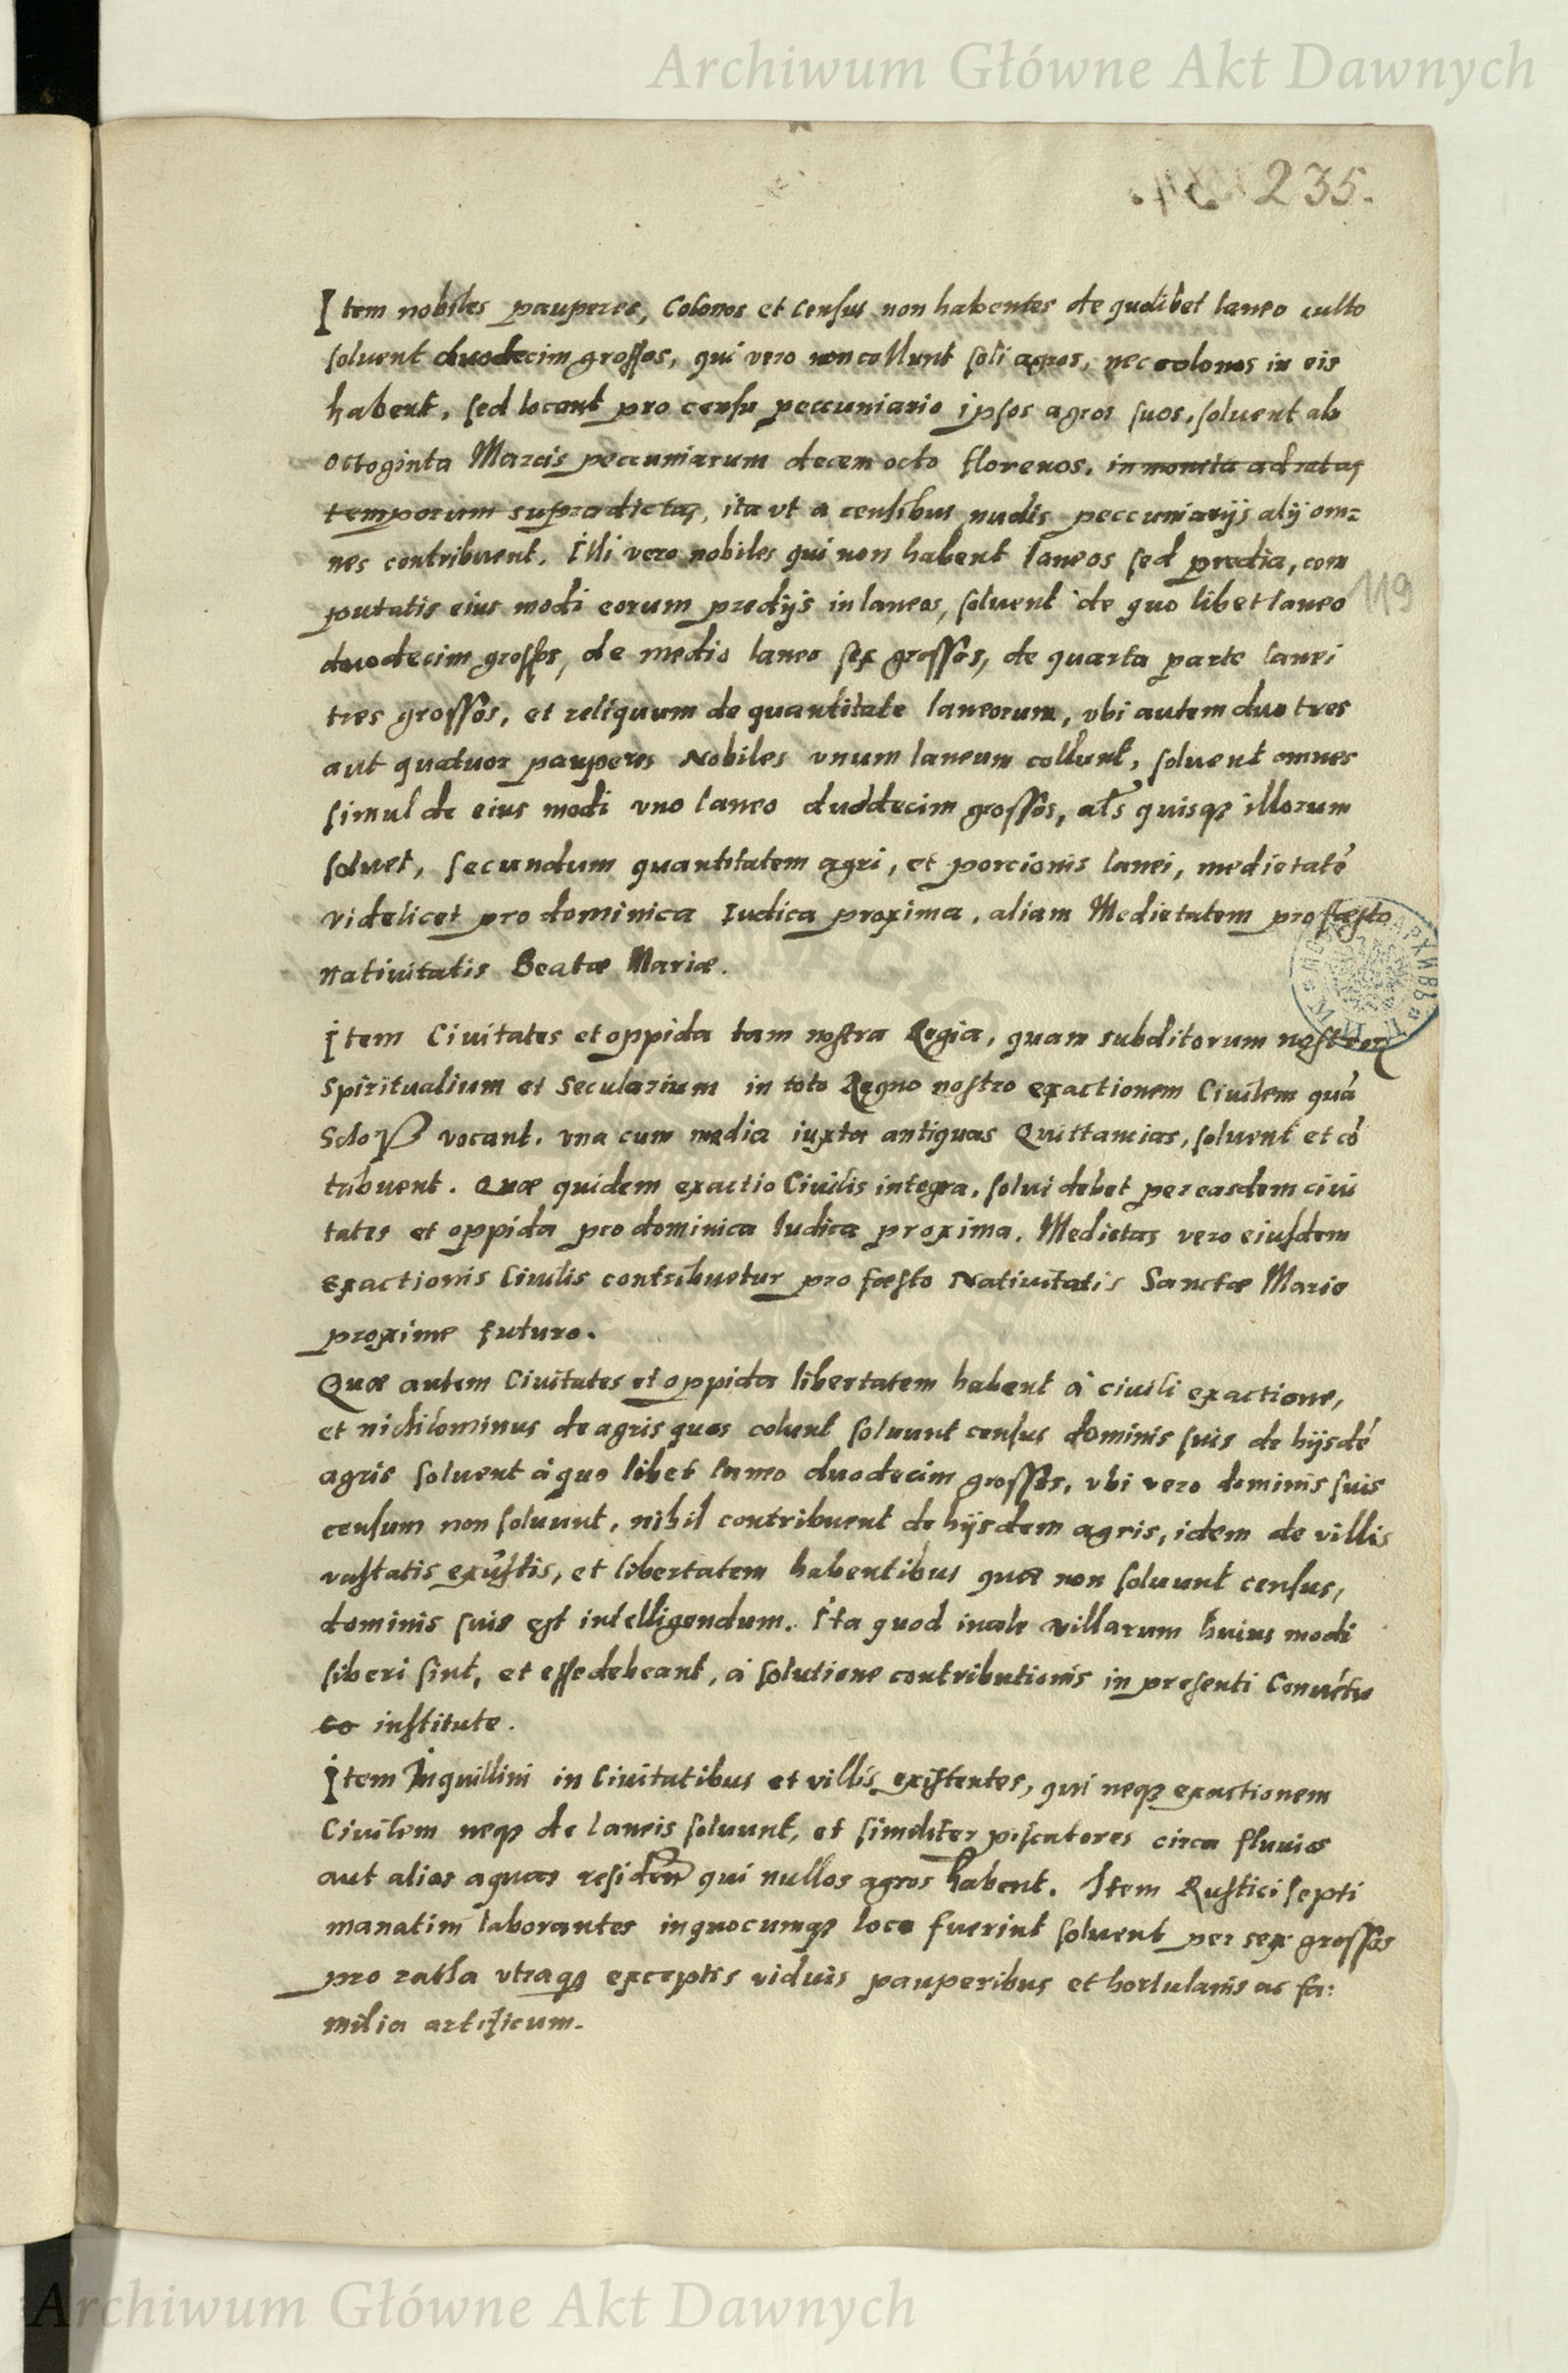 Archiwum Główne Akt Dawnych
235.
Item nobiles pauperes, Colonos et Census non habentes de quolibet laneo culto
soluent duodecim grossos, qui vero non collunt soli agros, nec colonos in eis
habent, sed locant pro censu peccuniario ipsos agros suos, soluent ab
octoginta Marcis peccuniarum decem octo florenos, in moneta ad ratas
temporum supradictas, ita vt a censibus nudis peccuniarijs alij om=
nes contribuent. Illi vero nobiles qui non habent laneos sed predia, com
putatis eius modi eorum predijs in laneos, soluent de quo libet laneo
119
duodecim grossos, de medio laneo sex grossos, de quarta parte lanei
tres grossos, et reliquum de quantitate laneorum, vbi autem duo tres
aut quatuor pauperes Nobiles vnum laneum collunt, soluent omnes
simul de eius modi vno laneo duodecim grossos, als quisqȝ illorum
soluet, secundum quantitatem agri, et porcionis lanei, medietatē
videlicet pro dominica Iudica proxima, aliam Medietatem pro fæsto
Natiuitatis Beatæ Mariæ.
Item Ciuitates et oppida tam nostra Regia, quam subditorum nostror
Spiritualium et Secularium in toto Regno nostro exactionem Ciuilem quā
Schoß vocant. vna cum media iuxta antiquas Quittancias, soluent et cō
tribuent. Quæ quidem exactio Ciuilis integra, solui debet per easdem ciui
tates et oppida pro dominica Iudica proxima. Medietas vero eiusdem
exactionis Ciuilis contribuetur pro fæsto Natiuitatis Sanctæ Marie
proxime futuro.
Quæ autem Ciuitates et oppida libertatem habent à ciuili exactione,
et nichilominus de agris quos colunt soluunt census dominis suis de hijsdē
agris soluent à quo libet laneo duodecim grossos, vbi vero dominis suis
censum non soluunt, nihil contribuent de hijsdem agris, idem de villis
vastatis exustis, et libertatem habentibus quæ non soluunt census,
dominis suis est intelligendum. Ita quod incole villarum huius modi
liberi sint, et esse debeant, à solutione contributionis in presenti Conuētu
co institute.
Item Inquillini in Ciuitatibus et villis existentes, qui neqȝ exactionem
Ciuilem neqȝ de laneis soluunt, et similiter piscatores circa fluuios
aut alias aquas residen qui nullos agros habent. Item Rustici septi
manatim laborantes in quocumqȝ loco fuerint soluent per sex grossos
pro ratha vtraqȝ exceptis viduis pauperibus et hortulanis ac fa:
milia artificum.
Archiwum Główne Akt Dawnych